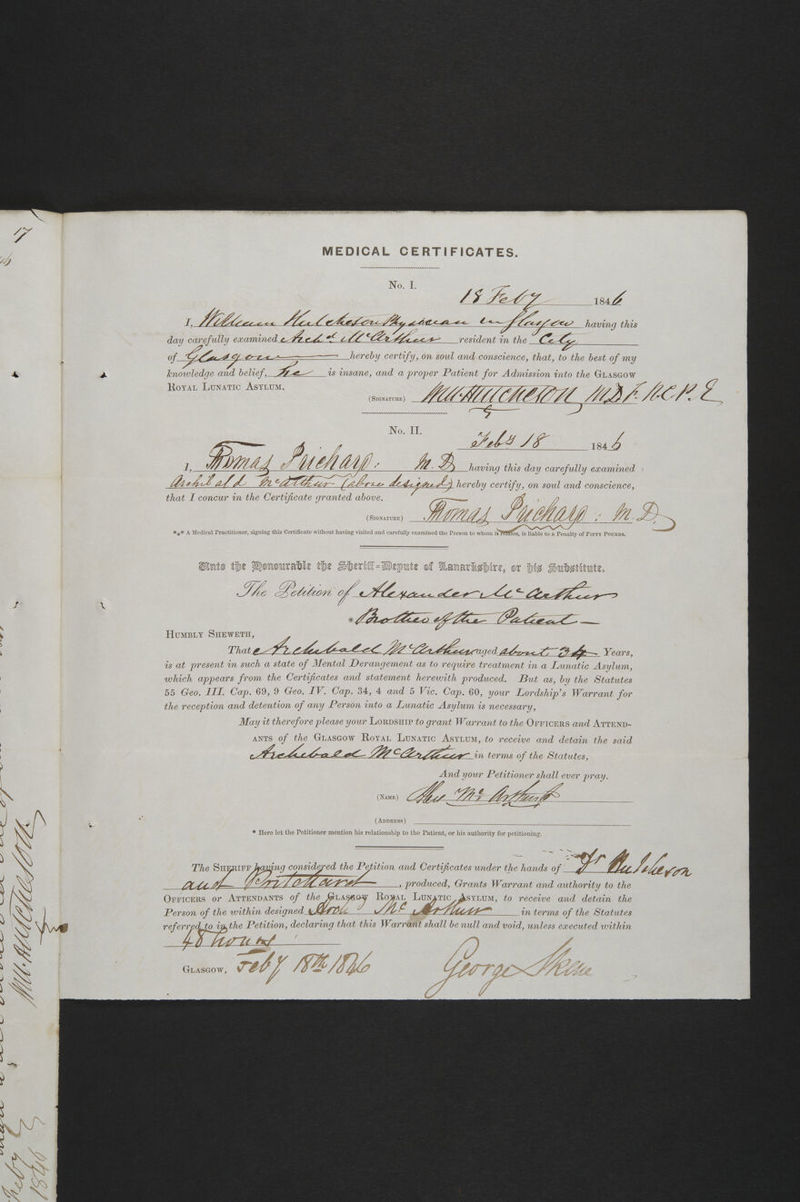 MEDICAL CERTIFICATES.
No. I.
18 Feby 1846
I, William Hutcheson Physician in Glasgow having this
day carefully examined Archd. McArthur resident in the City
of Glasgow hereby certify, on soul and conscience, that, to the best of my
knowledge and belief, he is insane, and a proper Patient for Admission into the GLASGOW
ROYAL LUNATIC ASYLUM.
(SIGNATURE) Wm. Hutcheson M.D. F.R.C.P.E
No. II.
Feby 18 1846
I, Thomas Prichard: M.D. having this day carefully examined
Archibald McArthur (above designed) hereby certify, on soul and conscience,
that I concur in the Certificate granted above.
(SIGNATURE) Thomas Prichard: M.D.
*** A Medical Practitioner, signing this Certificate without having visited and carefully examined the Person to whom it relates, is liable to a Penalty of FIFTY POUNDS.
Unto the Honourable the Sheriff-Depute of Lanarkshire, or his Substitute.
The Petition of Alexander McArthur
* Brother of the Patient —
HUMBLY SHEWETH,
That Archibald McArthur aged about 34 Years,
is at present in such a state of Mental Derangement as to require treatment in a Lunatic Asylum,
which appears from the Certificates and statement herewith produced. But as, by the Statutes
55 Geo. III. Cap. 69, 9 Geo. IV. Cap. 34, 4 and 5 Vic. Cap. 60, your Lordship's Warrant for
the reception and detention of any Person into a Lunatic Asylum is necessary,
May it therefore please your LORDSHIP to grant Warrant to the OFFICERS and ATTEND-
ANTS of the GLASGOW ROYAL LUNATIC ASYLUM, to receive and detain the said
Archibald McArthur in terms of the Statutes,
And your Petitioner shall ever pray.
(NAME) Alex McArthur
(ADDRESS)
* Here let the Petitioner mention his relationship to the Patient, or his authority for petitioning.
The SHERIFF having considered the Petition and Certificates under the hands of Dr Hutcheson
and Pritchard, produced, Grants Warrant and authority to the
OFFICERS or ATTENDANTS of the GLASGOW ROYAL LUNATIC ASYLUM, to receive and detain the
Person of the within designed Arch. Mc Arthur in terms of the Statutes
referred to in the Petition, declaring that this Warrant shall be null and void, unless executed within
48 hours
GLASGOW, Feby 18th 1846 George Skene
17
Wm. Hutcheson
Feby
1846